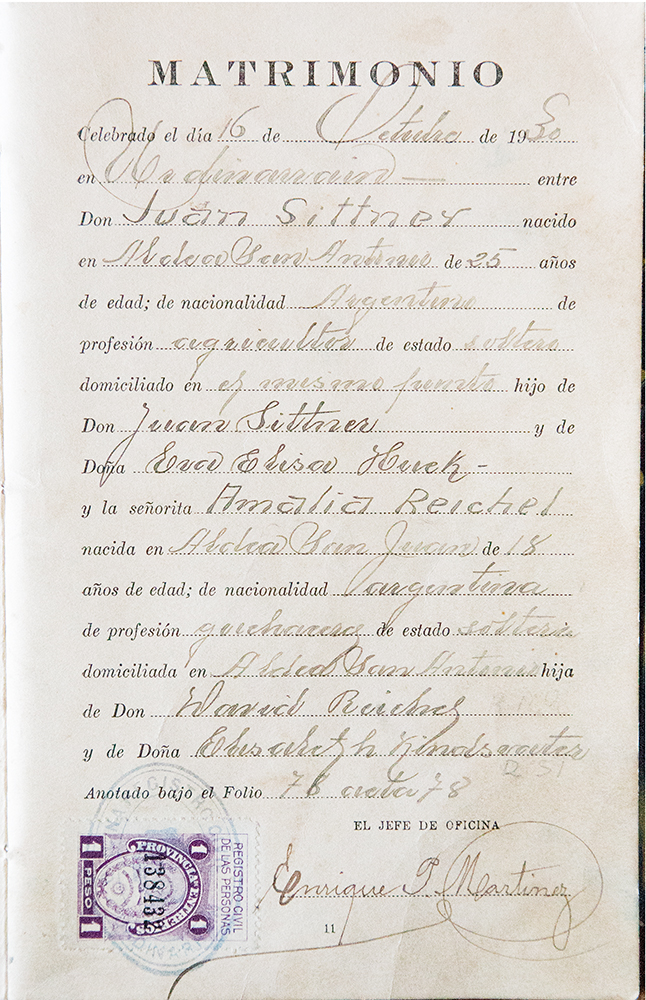 MATRIMONIO
Celebrado el día 16 de Octubre de 1930
en Urdinarrain — entre
Don Juan Sittner nacido
en Aldea San Antonio de 25 años
de edad; de nacionalidad Argentino de
profesión agricultor de estado soltero
domiciliado en el mismo punto hijo de
Don Juan Sittner y de
Doña Eva Elisa Huck -
y la señorita Amalia Reichel
nacida en Aldea San Juan de 18
años de edad; de nacionalidad argentina
de profesión de estado soltera
domiciliada en Aldea San Antonio hija
de Don David Reichel
y de Doña Elisabeth Kindsvater
Anotado bajo el Folio 78 acta 78
EL JEFE DE OFICINA
Enrique P. Martinez
11
REGISTRO CIVIL
DE LAS PERSONAS
PROVINCIA ENTRE
1 PESO 1